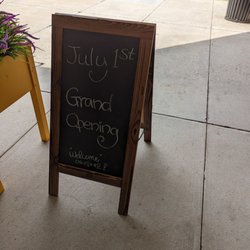 July 1st
Grand
Opening
welcome